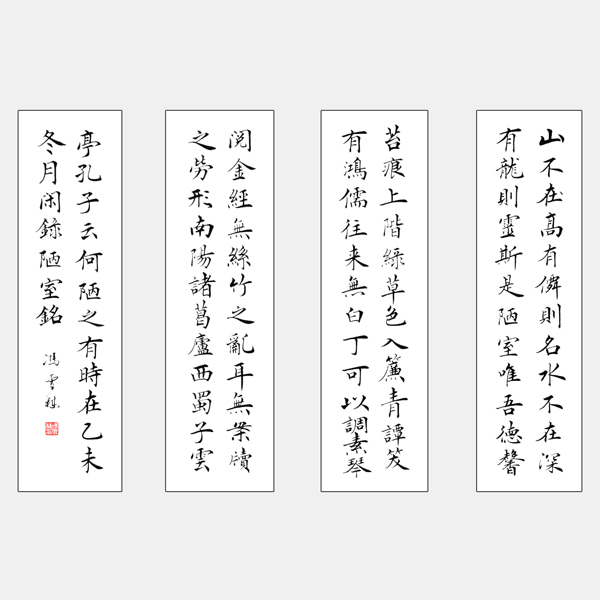 山不在高有僊則名水不在深
有龍則靈斯是陋室唯吾德馨
苔痕上階綠草色入簾青譚笑
有鴻儒往来無白丁可以調素琴
閱金經無絲竹之亂耳無案牘
之勞形南陽諸葛廬西蜀子雲
亭孔子云何陋之有時在乙未
冬月闲錄陋室銘
冯雪